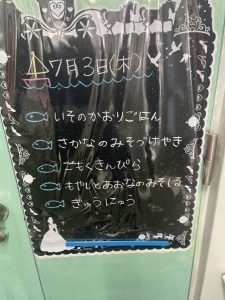 7月3日(木)
いそのかおりごはん
さかなのみそつけやき
ごもくきんぴら
もやしとあおなのみそしる
ぎゅうにゅう